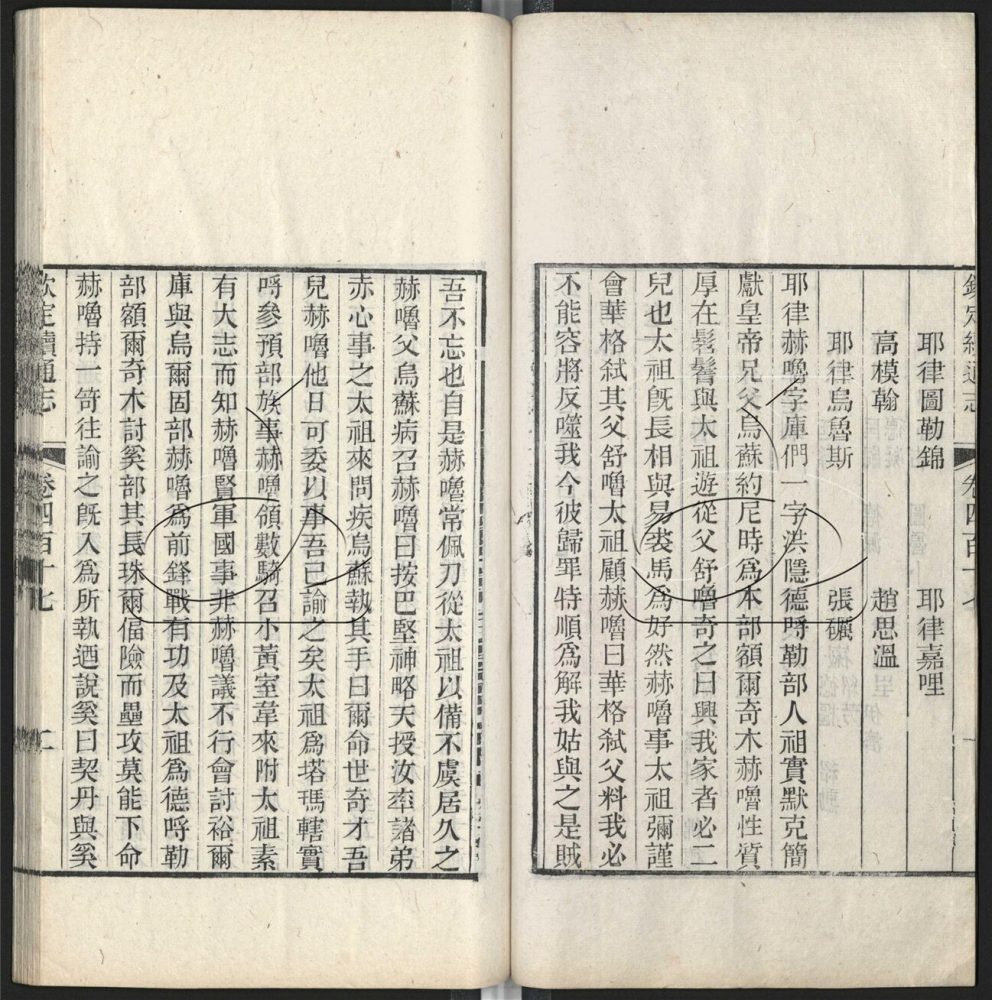 欽定續通志 卷四百十七
耶律圖勒錦 耶律嘉哩
高模翰 趙思溫
耶律烏魯斯 張礪
耶律赫嚕字庫們一字洪隱德呼勒部人祖實默克簡
獻皇帝兄父烏蘇約尼時為本部額爾奇木赫嚕性質
厚在髫鬌與太祖遊從父舒嚕奇之曰興我家者必二
兒也太祖旣長相與易裘馬為好然赫嚕事太祖彌謹
會華格弑其父舒嚕太祖顧赫嚕曰華格弑父料我必
不能容將反噬我今彼歸罪特順為解我姑與之是賊
吾不忘也自是赫嚕常佩刀從太祖以備不虞居久之
赫嚕父烏蘇病召赫嚕曰按巴堅神略天授汝率諸弟
赤心事之太祖來問疾烏蘇執其手曰爾命世奇才吾
兒赫嚕他日可委以事吾已諭之矣太祖為塔瑪轄實
呼參預部族事赫嚕領數騎召小黃室韋來附太祖素
有大志而知赫嚕賢軍國事非赫嚕議不行會討裕爾
庫與烏爾固部赫嚕為前鋒戰有功及太祖為德呼勒
部額爾奇木討奚部其長珠爾偪險而壘攻莫能下命
赫嚕持一笴往諭之旣入為所執迺說奚曰契丹與奚
欽定續通志 卷四百十七 二